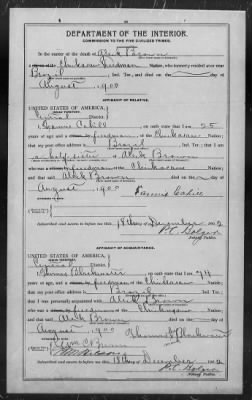 DEPARTMENT OF THE INTERIOR,
COMMISSION TO THE FIVE CIVILIZED TRIBES.
In the matter of the death of Alek Brown
a Chickasaw Freedman Nation, who formerly resided at or near
Brazil, Ind. Ter., and died on the day of
August, 1900
AFFIDAVIT OF RELATIVE.
UNITED STATES OF AMERICA,
INDIAN TERRITORY,
Central District.
I, Fannie, on oath state that I am 25
years of age and a freedman of the Chickasaw
Nation; that my post office address is Brazil, Ind. Ter.; that I am
a half sister of Alek Brown
who was a freedman of the Chickasaw
Nation; and that said Alek Brown died on the day of
August, 1900
Fannie
Subscribed and sworn to before me this 18th day of December 1902
Notary Public.
AFFIDAVIT OF ACQUAINTANCE.
UNITED STATES OF AMERICA,
INDIAN TERRITORY,
Central District.
I, Thomas, on oath state that I am
years of age, and a freedman of the Chickasaw
Nation; that my post office address is Brazil, Ind. Ter.;
that I was personally acquainted with Alek Brown
who was a freedman of the Chickasaw
Nation; and that said Alek Brown died on the day of
August, 1900
Subscribed and sworn to before me this 18th day of December 1902
Notary Public.